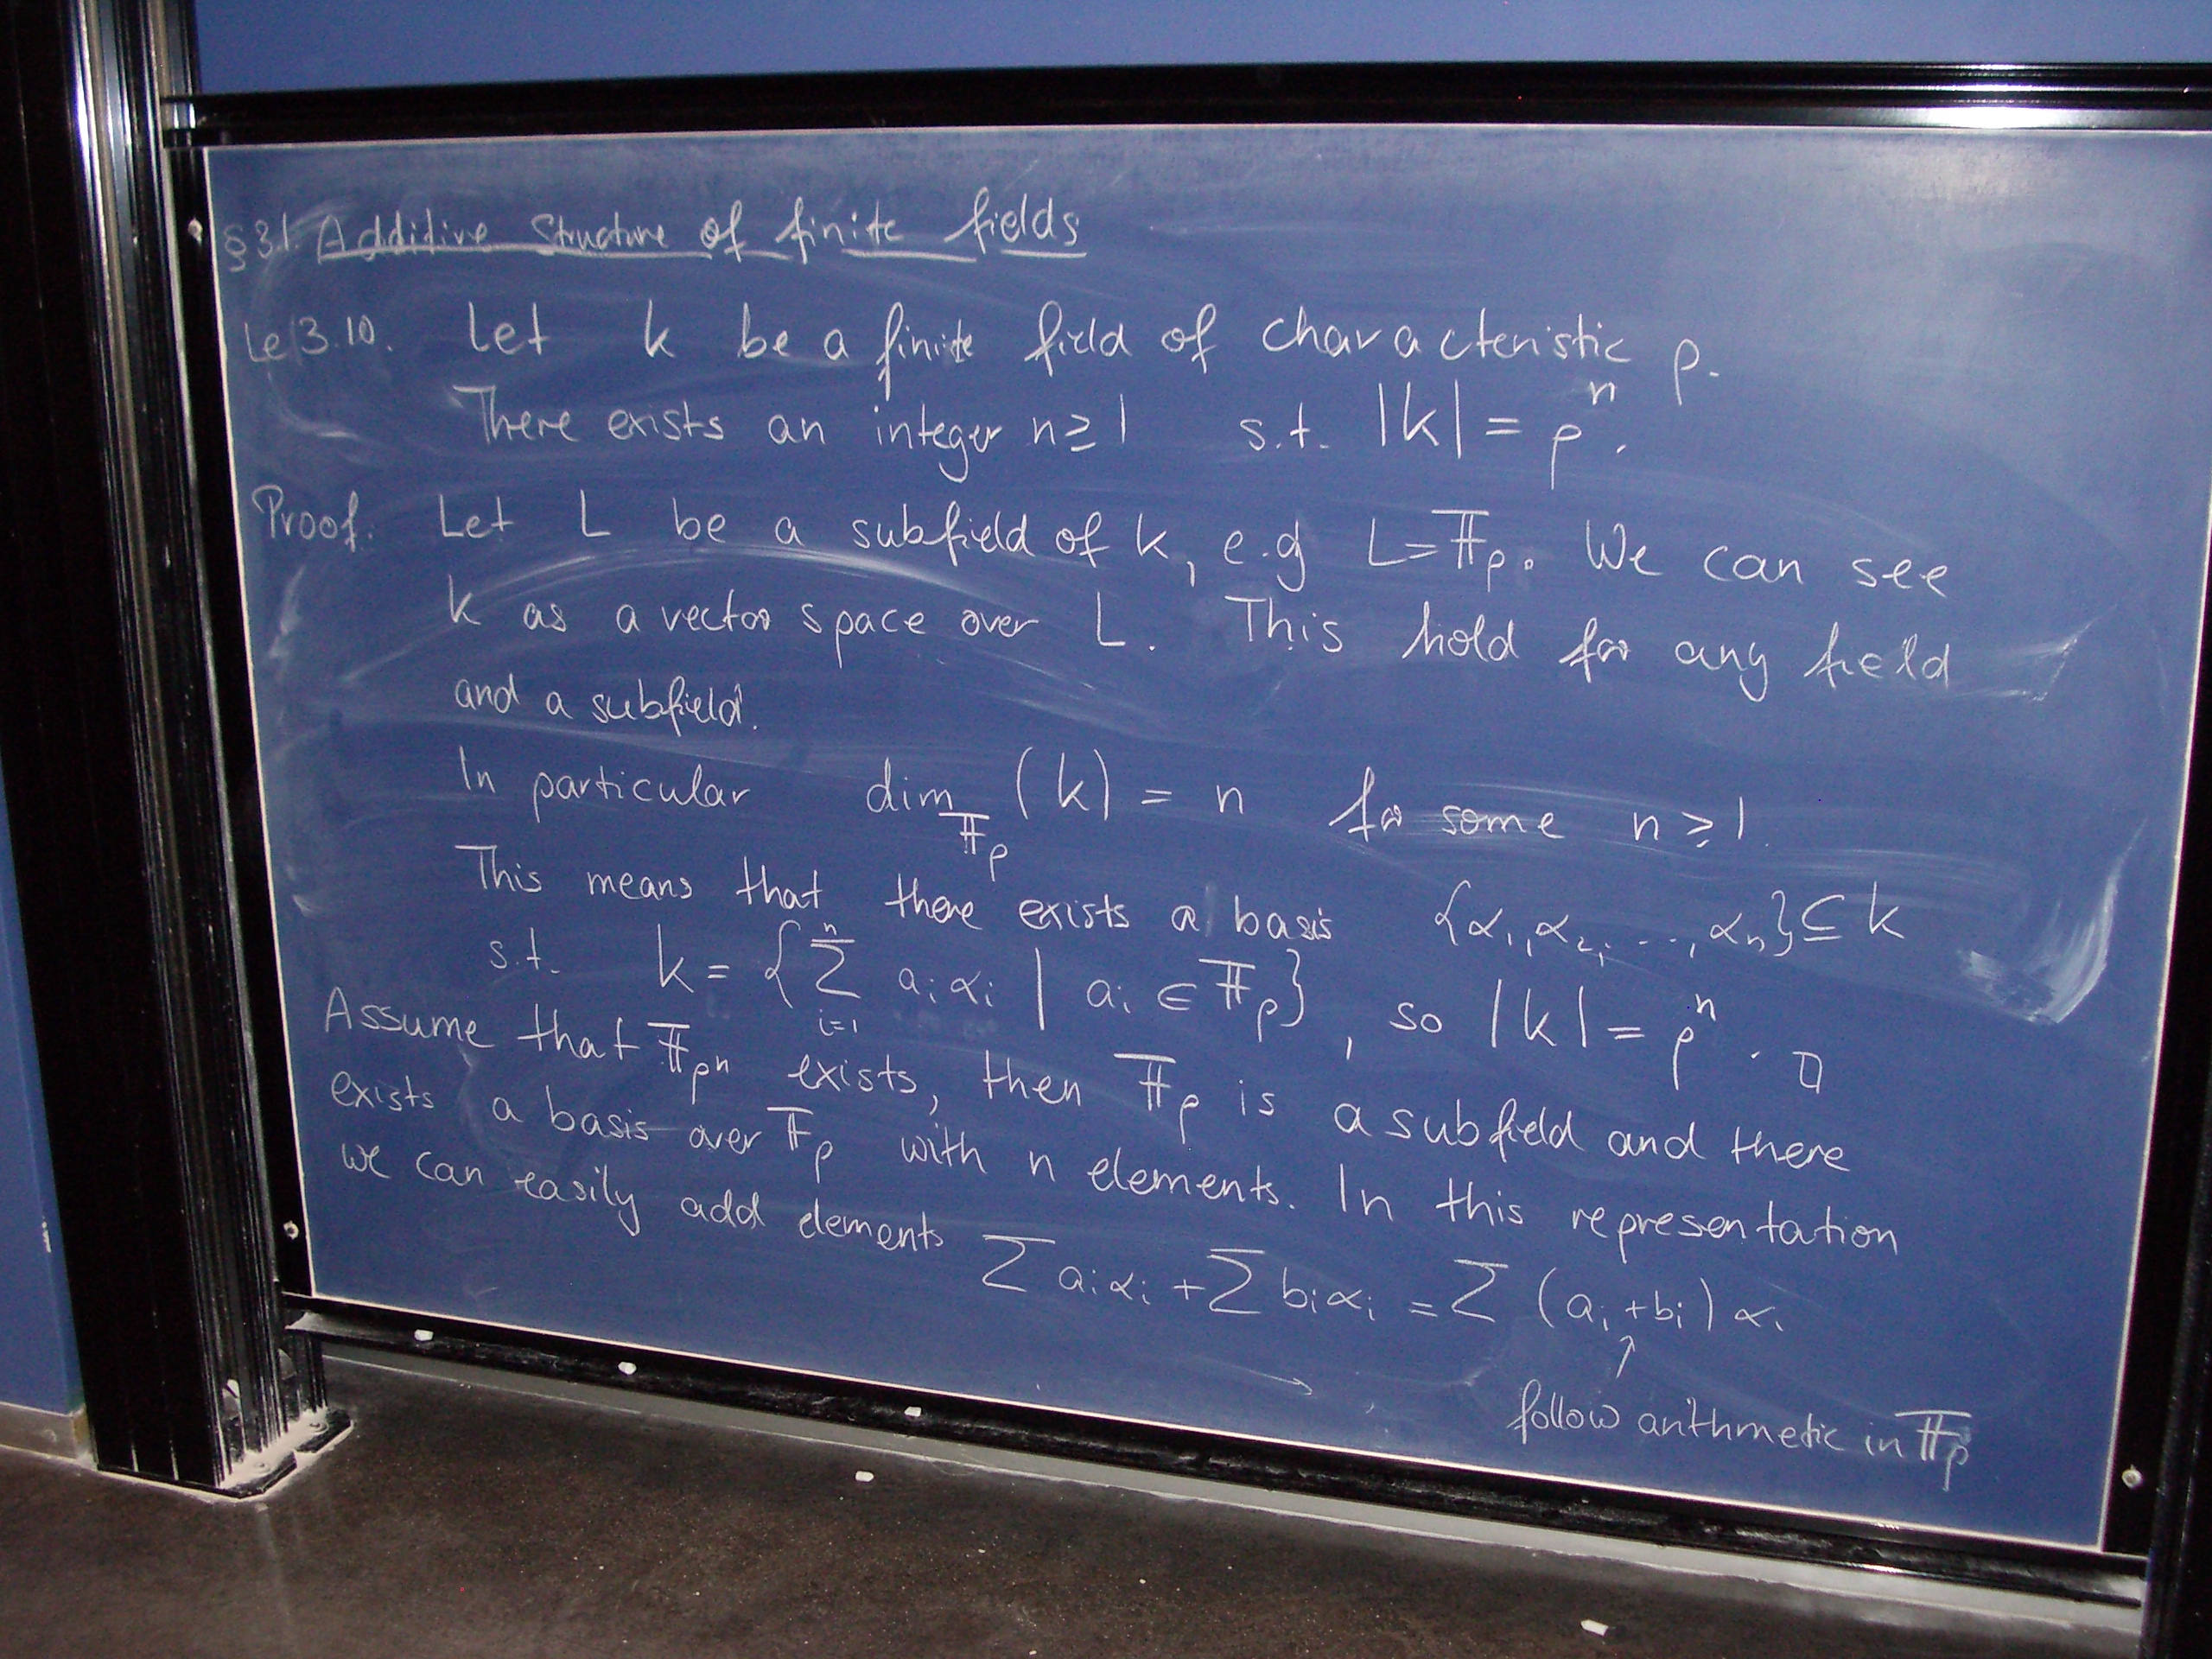 §3.1. Additive Structure of finite fields
Le 3.10. Let k be a finite field of characteristic p.
There exists an integer n≥1 s.t. |k| = pⁿ.
Proof. Let L be a subfield of k, e.g L=𝔽ₚ. We can see
k as a vector space over L. This hold for any field
and a subfield.
In particular dim_𝔽ₚ (k) = n for some n ≥ 1.
This means that there exists a basis {α₁, α₂, ..., αₙ} ⊆ k
s.t. k = {∑_{i=1}^{n} aᵢ αᵢ | aᵢ ∈ 𝔽ₚ}, so |k| = pⁿ. □
Assume that 𝔽_{pⁿ} exists, then 𝔽ₚ is a subfield and there
exists a basis over 𝔽ₚ with n elements. In this representation
we can easily add elements ∑ aᵢαᵢ + ∑ bᵢαᵢ = ∑ (aᵢ + bᵢ) αᵢ
↑
follow arithmetic in 𝔽ₚ